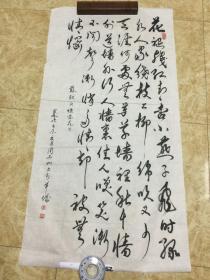 花褪殘紅青杏小燕子飛時綠
水人家繞枝上柳綿吹又少
天涯何處無芳草墻裡秋千墻
外道墻外行人墻裏佳人咲笑漸
不聞聲漸悄多情却被無
情惱
蘇軾詞蝶恋花